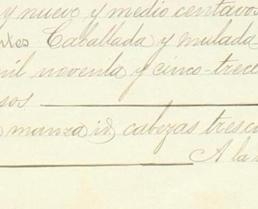 y nueve y medio centavos
ntes Caballada y mulada
mil noventa y cinco trece
sos
manza id, cabezas tresc
A la